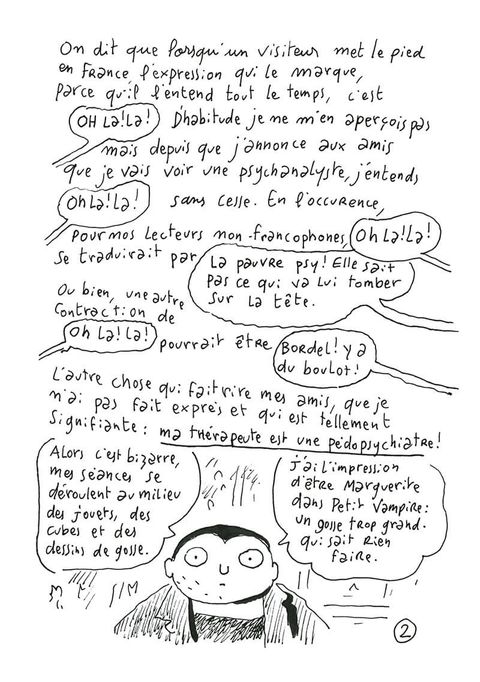 On dit que lorsqu'un visiteur met le pied
en France l'expression qui le marque,
parce qu'il l'entend tout le temps, c'est
OH La! La! D'habitude je ne m'en aperçois pas
mais depuis que j'annonce aux amis
que je vais voir une psychanalyste, j'entends
Oh La! La! sans cesse. En l'occurence,
Pour mos Lecteurs non-francophones, Oh La! La!
se traduirait par La pauvre psy! Elle sait
pas ce qui va lui tomber
sur la tête.
Ou bien, une autre
contraction de
Oh La! La! pourrait être Bordel! y a
du boulot!
L'autre chose qui fait rire mes amis, que je
n'ai pas fait exprès et qui est tellement
signifiante : ma thérapeute est une pédopsychiatre!
Alors c'est bizarre,
mes séances se
déroulent au milieu
des jouets, des
cubes et des
dessins de gosse.
j'ai l'impression
d'être Marguerite
dans Petit Vampire:
un gosse trop grand.
qui sait rien
faire.
2